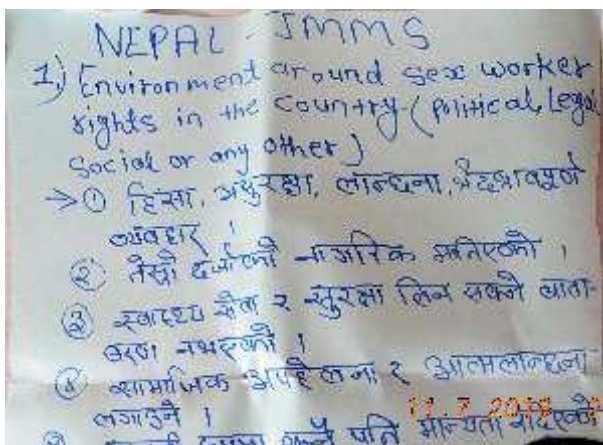 NEPAL - JMMS
1) Environment around sex worker
rights in the country (Political, Legal
Social or any other)
→ ① हिंसा, असुरक्षा, लान्छना, भेदभावपूर्ण
व्यवहार ।
② तेस्रो दर्जाको नागरिक मानिएको ।
③ स्वास्थ्य सेवा र सुरक्षा लिन सक्ने वाता-
वरण नभएको ।
④ सामाजिक अपहेलना र आत्मलान्छना
लगाउने ।
पनि मान्यता नदिएको
11.7.2018